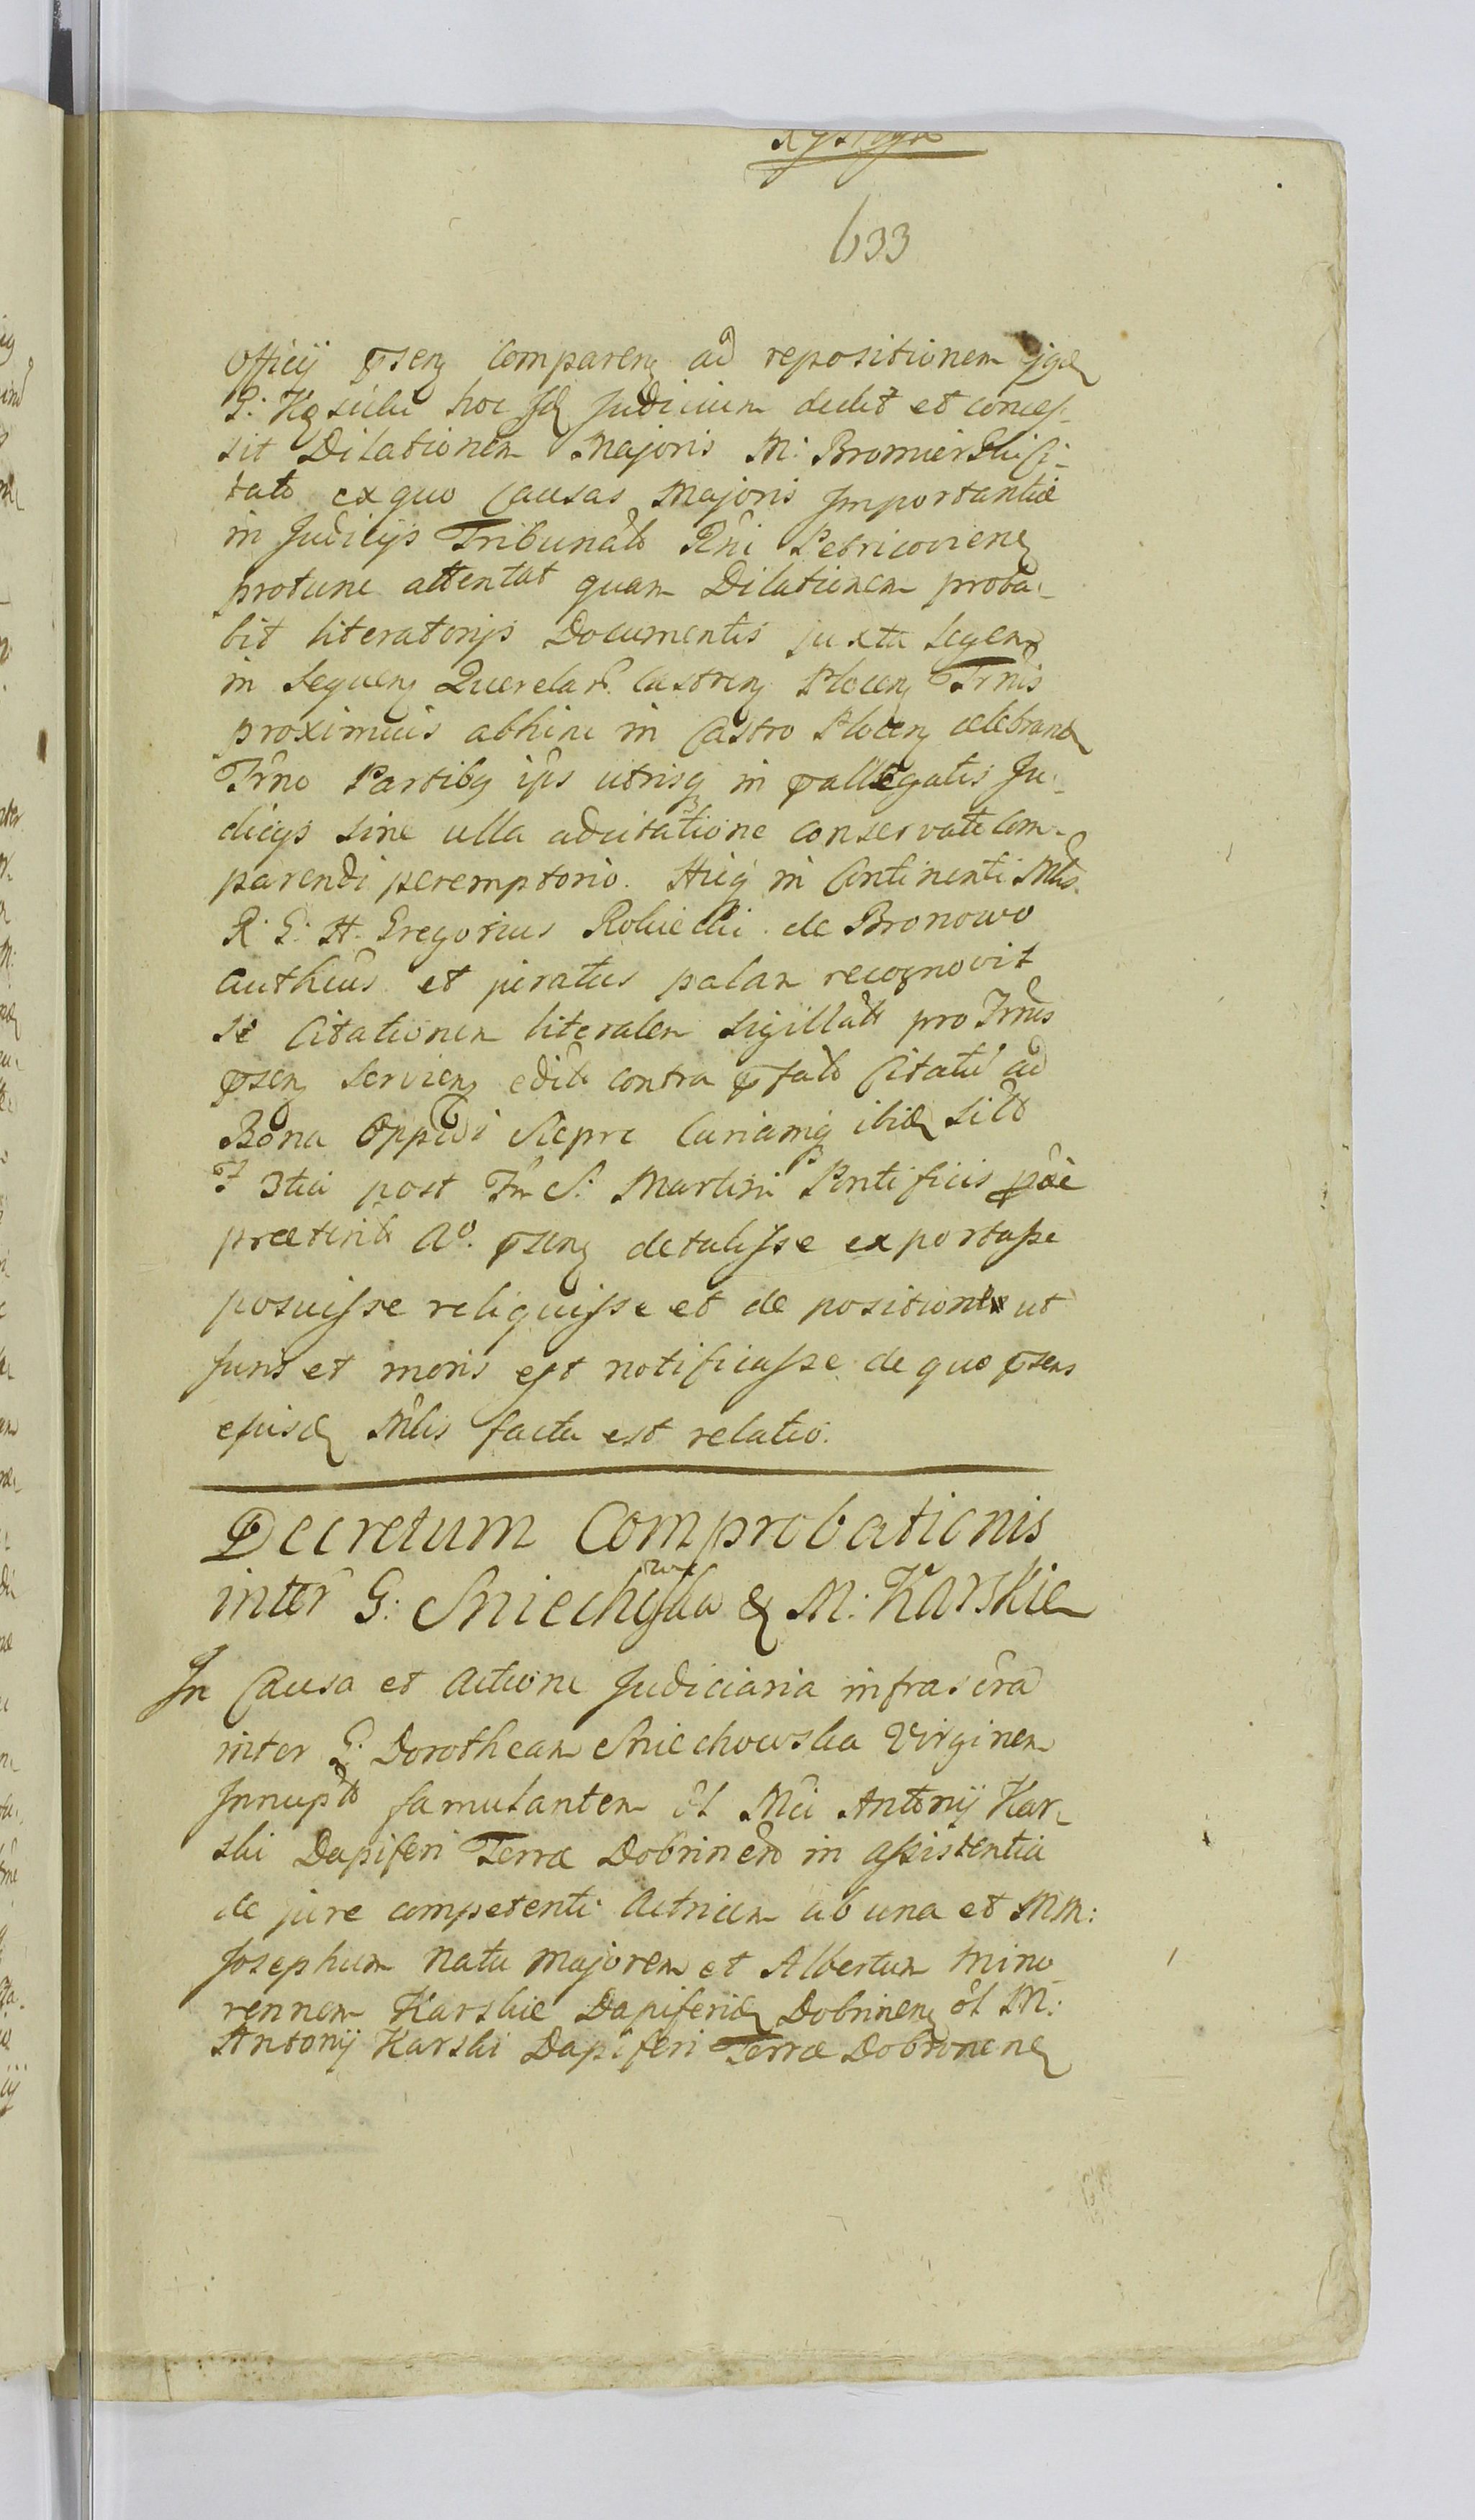 633
Officij psen comparen ad repositionem
hoc Judicium dedit et conces-
sit Dilationem Majoris M: Bromierski Ci-
tato ex quo Causas Majoris Importantiæ
in Judicijs Tribunalb Rni Petricovien
protunc attentat quam Dilationem proba-
bit literatorijs Documentis juxta Legem
in sequen Querelar. Castren Plocen Trnis
proximius abhinc in Castro Plocen celebrand
Trno Partibq ips utrisq in pallegatis Ju-
dicijs sine ulla adcitatione conservate Com-
parendi peremptorio. Huiq in Continenti Mlis
R. G. H. Gregorius de Bronowo
authcus et juratus palam recognovit
se Citationem literalem sigillatt pro Trnis
psen servien edit contra pfato Citatū ad
Bona Oppidi Siepre Curiamq ibid sito
3tia post Fm S: Martini Pontificis pōe
præterit Aº. psen detulisse exportasse
posuisse reliquisse et de positione ut
Juris et moris est notificasse de quo psens
ejusd Mlis facta est relatio.
Decretum Comprobationis
inter G: & M: Karskie
In Causa et Actione Judiciaria infrascra
inter G: Dorotheam Sniechowska Virginem
Innuptā famulantem ol Mci Antonij Kar-
ski Dapiferi Terræ Dobrinen in assistentia
de jure competenti Actricem ab una et MM:
Josephum natu majorem et Albertum mino
rennem Karskie Dapiferid Dobrinen ol M:
Antonij Karski Dapiferi Terræ Dobronen